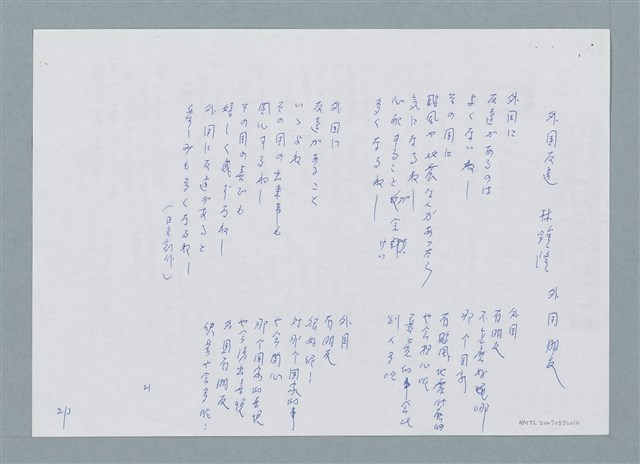 外国友達 林鐘隆 外国朋友
外国に
友達があるのは
よくないねー
その国に
颱風や地震なんかあったら
気になるねー
心配することが余計
多くなるねー
外国に
友達があること
いいよね
その国の出来事も
関心するねー
その国の喜びも
嬉しく感ずるねー
外国に友達があると
楽しみも多くなるねー
(日文創作)
外国
有朋友
不怎麼好哪
那个国家
有颱風、地震什麼的
也会担心呢
要管的事会比
別人多呢
外国
有朋友
很好呢!
対那个国家的事
也会関心
那个国家的喜悦
也会
外国有朋友
快楽也会多呢!
21
2/3
NMTL20070550010